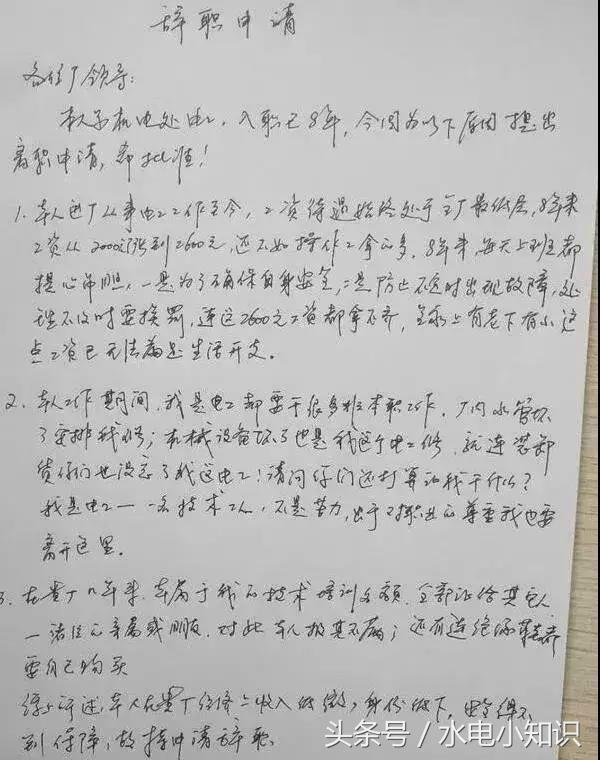 辞职申请
各位厂领导:
本人系机电处电工，入职已8年，今因为以下原因提出
离职申请，希批准！
1. 本人进厂从事电工工作至今，工资待遇始终处于全厂最低层，8年来
工资从2000元涨到2600元，还不如操作工拿的多，8年来，每天上班都
提心吊胆，一是为了确保自身安全，二是防止不定时出现故障，处
理不及时要挨罚，连这2600元工资都拿不齐，全家上有老下有小，这
点工资已无法满足生活开支。
2. 本人工作期间，我是电工却要干很多非本职工作，厂内水管坏
了安排我修；机械设备坏了也是我这个电工修，就连装卸
货你们也没忘了我这电工！请问你们还打算让我干什么？
我是电工——一名技术工人，不是苦力，出于对职业的尊重我也要
离开这里。
3. 在贵厂几年来，本属于我的技术培训名额，全部让给其它人
一诸位的亲属或朋友，对此本人极其不满；还有连绝缘鞋都
要自己购买
综上所述，本人在贵厂经济上收入低微，身份低下，安全得不
到保障，故特申请辞职。
头条号 / 水电小知识